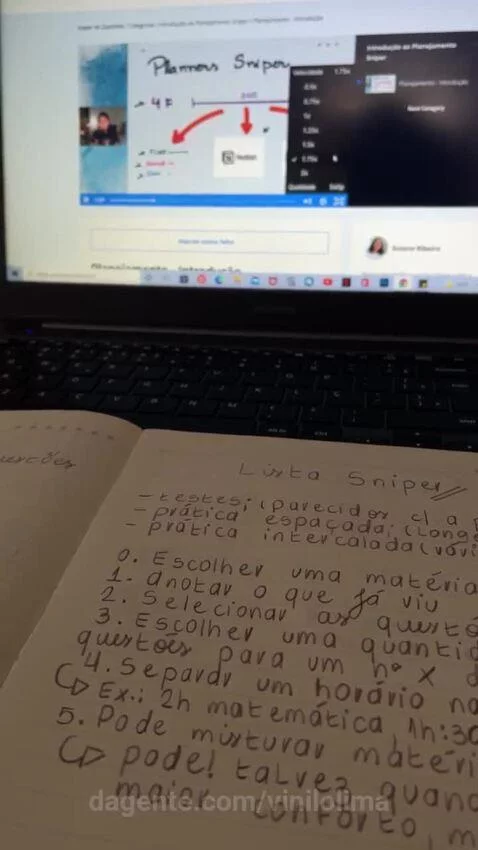 Planners Sniper
4 F
Notion
Introdução ao Planejamento
Sniper
Planejamento - Introdução
Velocidade 1.75x
0.5x
0.75x
1x
1.25x
1.5x
1.75x
2x
Qualidade
Planejamento - Introdução
uestões
Lista Sniper
- testes; (parecidos c/ a p
- prática espaçada; (Long
- prática intercalada (vári
0. Escolher uma matéria
1. Anotar o que já viu
2. Selecionar as questõ
3. Escolher uma quantid
questões para um nº X d
4. Separar um horário na
Ex.: 2h matemática, 1h:30
5. Pode misturar matéri
pode! talvez quand
maior conforto, m
dagente.com/vinilolima